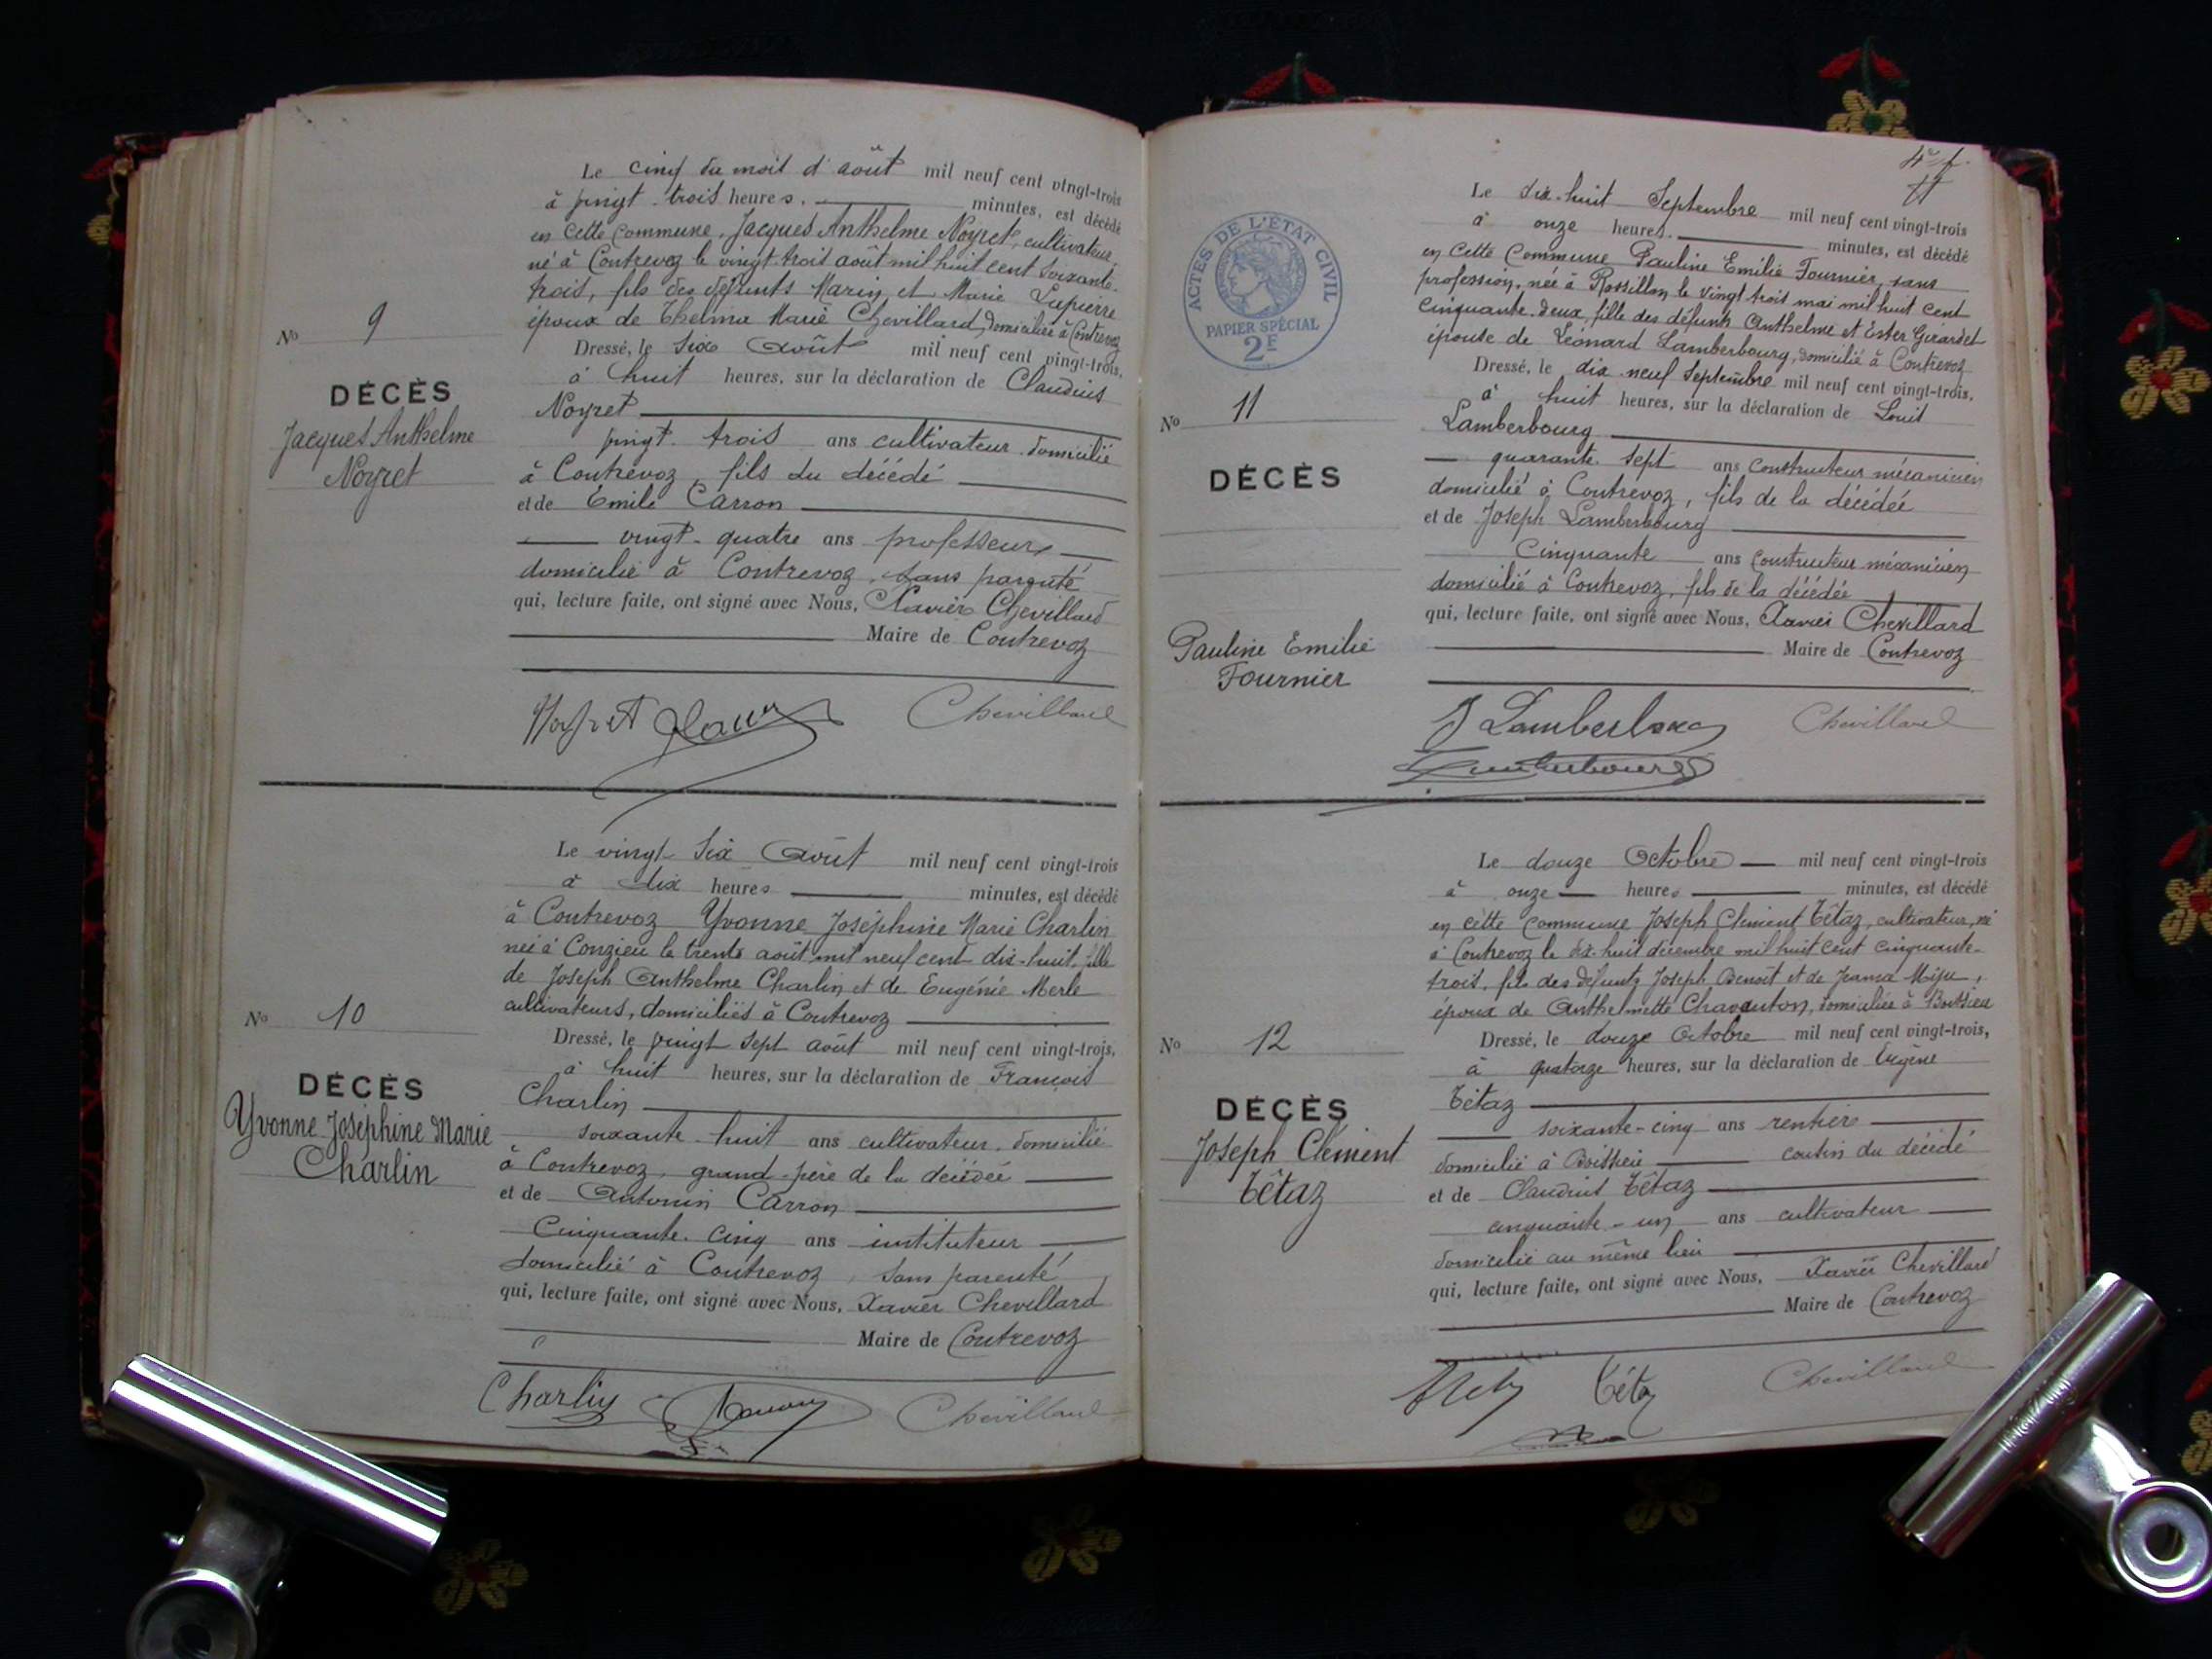 Le cinq du mois d'août mil neuf cent vingt-trois
à vingt-trois heures. minutes, est décédé
en cette commune, Jacques Anthelme Noyret, cultivateur,
né à Contrevoz le vingt-trois août mil huit cent soixante-
trois, fils des défunts Marin et Marie Lupierre
époux de Thelma Marie Chevillard, domiciliée à Contrevoz
Dressé, le six Août mil neuf cent vingt-trois,
à huit heures, sur la déclaration de Claudius
Noyret
vingt-trois ans cultivateur domicilié
à Contrevoz, fils du décédé
et de Emile Carron
vingt-quatre ans professeur
domicilié à Contrevoz, sans parenté
qui, lecture faite, ont signé avec Nous, Xavier Chevillard
Maire de Contrevoz
No 9
DÉCÈS
Jacques Anthelme
Noyret
Noyret Chevillard
Le vingt-six Août mil neuf cent vingt-trois
à dix heures minutes, est décédé
à Contrevoz Yvonne Joséphine Marie Charlin
née à Conzieu le trente août mil neuf cent dix-huit, fille
de Joseph Anthelme Charlin et de Eugénie Merle
cultivateurs, domiciliés à Contrevoz
Dressé, le vingt sept août mil neuf cent vingt-trois,
à huit heures, sur la déclaration de François
Charlin
soixante-huit ans cultivateur, domicilié
à Contrevoz, grand-père de la décédée
et de Antonin Carron
Cinquante-cinq ans instituteur
domicilié à Contrevoz, sans parenté
qui, lecture faite, ont signé avec Nous, Xavier Chevillard
Maire de Contrevoz
No 10
DÉCÈS
Yvonne Joséphine Marie
Charlin
Charlin Chevillard
4e f.
ACTES DE L'ÉTAT CIVIL
PAPIER SPÉCIAL
2F
Le dix-huit Septembre mil neuf cent vingt-trois
à onze heures. minutes, est décédé
en cette commune Pauline Emilie Fournier, sans
profession, née à Rossillon le vingt trois mai mil huit cent
cinquante-deux, fille des défunts Anthelme et Ester Girardet
épouse de Léonard Lamberbourg, domicilié à Contrevoz
Dressé, le dix-neuf Septembre mil neuf cent vingt-trois,
à huit heures, sur la déclaration de Louis
Lamberbourg
quarante-sept ans constructeur mécanicien
domicilié à Contrevoz, fils de la décédée
et de Joseph Lamberbourg
Cinquante ans constructeur mécanicien
domicilié à Contrevoz, fils de la décédée
qui, lecture faite, ont signé avec Nous, Xavier Chevillard
Maire de Contrevoz
No 11
DÉCÈS
Pauline Emilie
Fournier
J Lamberbourg Chevillard
Lamberbourg
Le douze Octobre mil neuf cent vingt-trois
à onze heures minutes, est décédé
en cette commune Joseph Clément Têtaz, cultivateur, né
à Contrevoz le dix-huit décembre mil huit cent cinquante-
trois, fils des défunts Joseph Benoît et de Jeanne
époux de Anthelmette Chavanton, domiciliée à Boissieu
Dressé, le douze Octobre mil neuf cent vingt-trois,
à quatorze heures, sur la déclaration de Eugène
Têtaz
soixante-cinq ans rentier
domicilié à Boissieu cousin du décédé
et de Claudius Têtaz
cinquante-un ans cultivateur
domicilié au même lieu
qui, lecture faite, ont signé avec Nous, Xavier Chevillard
Maire de Contrevoz
No 12
DÉCÈS
Joseph Clément
Têtaz
Têtaz Chevillard